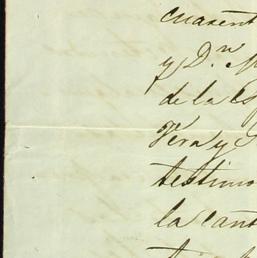 cuarent
y D.n M
de la Es
Vera y
testimo
la cant